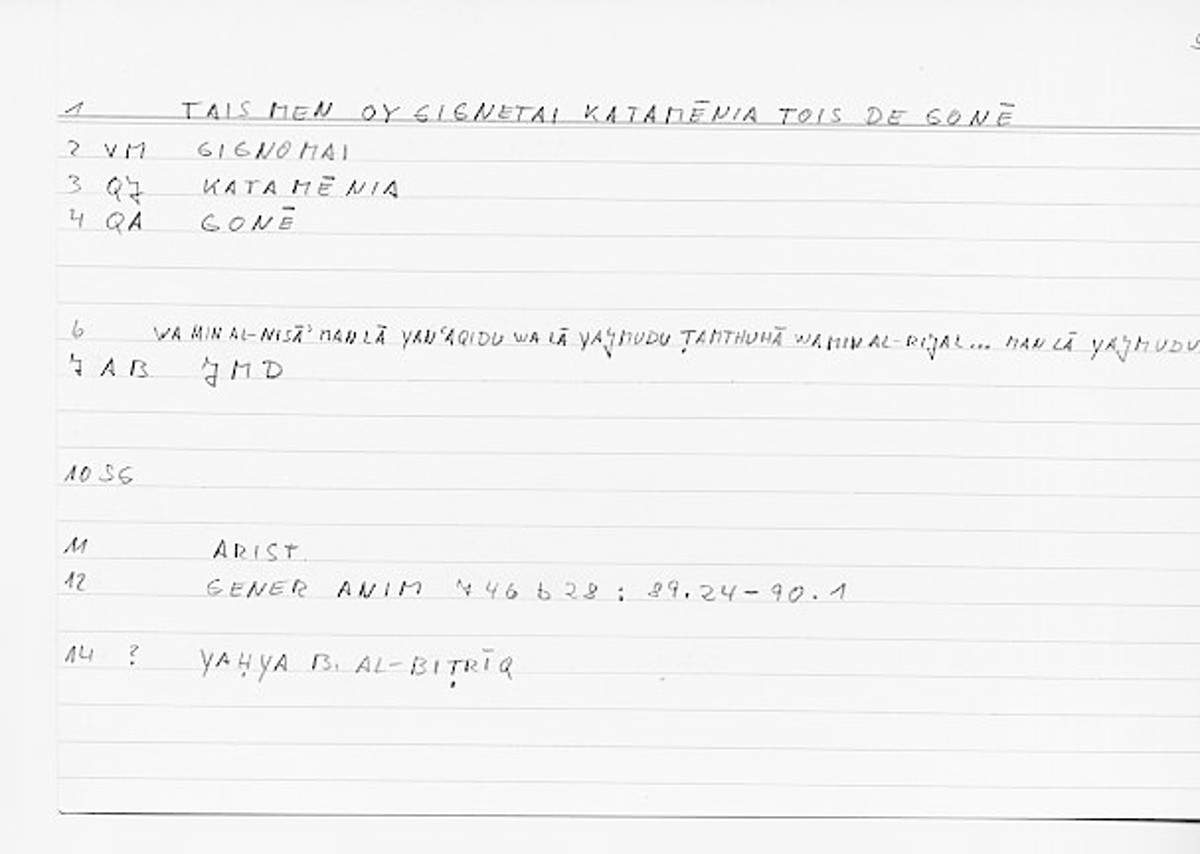 1 TAIS MEN OY GIGNETAI KATAMĒNIA TOIS DE GONĒ
2 VM GIGNOMAI
3 QJ KATAMĒNIA
4 QA GONĒ
6 WA MIN AL-NISĀʾ MAN LĀ YANʿAQIDU WA LĀ YAJMUDU ṬAMTHUHĀ WA MIN AL-RIJAL... MAN LĀ YAJMUDU
7 AB JMD
10 SG
11 ARIST.
12 GENER ANIM 746 b 28 : 89.24-90.1
14 ? YAḤYA B. AL-BIṬRĪQ